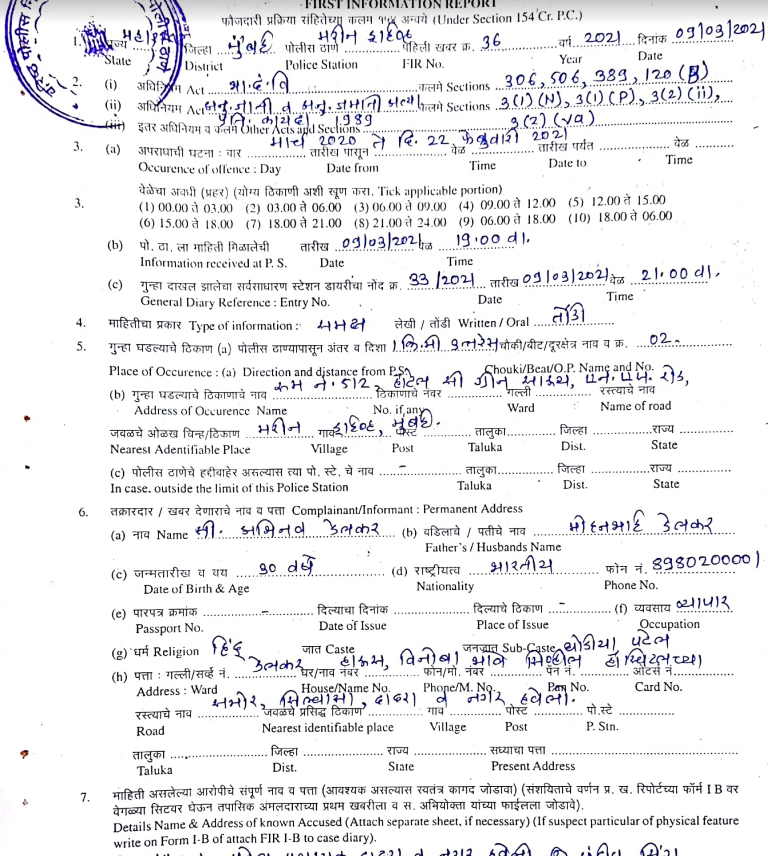 FIRST INFORMATION REPORT
फौजदारी प्रक्रिया संहितेच्या कलम १५४ अन्वये (Under Section 154 Cr. P.C.)
1. राज्य महाराष्ट्र जिल्हा मुंबई पोलीस ठाणे मरीन ड्राईव्ह पहिली खबर क्र. 36 वर्ष 2021 दिनांक 09/03/2021
State District Police Station FIR No. Year Date
2. (i) अधिनियम Act भा.दं.वि कलमे Sections 306, 506, 389, 120 (B)
(ii) अधिनियम Act अनु.जाती व अनु.जमाती अत्या. कलमे Sections 3(1)(N), 3(1)(P), 3(2)(ii),
प्रति. कायदा 1989
(iii) इतर अधिनियम व कलमे Other Acts and Sections 3(2)(va)
मार्च 2020 ते दि. 22 फेब्रुवारी 2021
3. (a) अपराधाची घटना : वार तारीख पासून वेळ तारीख पर्यंत वेळ
Occurence of offence : Day Date from Time Date to Time
3. वेळेचा अवधी (प्रहर) (योग्य ठिकाणी अशी खूण करा. Tick applicable portion)
(1) 00.00 ते 03.00 (2) 03.00 ते 06.00 (3) 06.00 ते 09.00 (4) 09.00 ते 12.00 (5) 12.00 ते 15.00
(6) 15.00 ते 18.00 (7) 18.00 ते 21.00 (8) 21.00 ते 24.00 (9) 06.00 ते 18.00 (10) 18.00 ते 06.00
(b) पो. ठा. ला माहिती मिळालेची तारीख 09/03/2021 वेळ 19:00 वा.
Information received at P. S. Date Time
(c) गुन्हा दाखल झालेचा सर्वसाधारण स्टेशन डायरीचा नोंद क्र. 33/2021 तारीख 09/03/2021 वेळ 21.00 वा.
General Diary Reference : Entry No. Date Time
4. माहितीचा प्रकार Type of information : समक्ष लेखी / तोंडी Written / Oral तोंडी
5. गुन्हा घडल्याचे ठिकाण (a) पोलीस ठाण्यापासून अंतर व दिशा 1 कि.मी उत्तरेस चौकी/बीट/दूरक्षेत्र नाव व क्र. 02
Place of Occurence : (a) Direction and distance from P.S. Chouki/Beat/O.P. Name and No.
रूम नं. 512, हॉटेल सी ग्रीन साऊथ, एन. एस. रोड,
(b) गुन्हा घडल्याचे ठिकाणाचे नाव ठिकाणाचे नंबर गल्ली रस्त्याचे नाव
Address of Occurence Name No. if any Ward Name of road
जवळचे ओळख चिन्ह/ठिकाण मरीन गाव ड्राईव्ह, मुंबई. पोस्ट तालुका जिल्हा राज्य
Nearest Adentifiable Place Village Post Taluka Dist. State
(c) पोलीस ठाणेचे हद्दीबाहेर असल्यास त्या पो. स्टे. चे नाव तालुका जिल्हा राज्य
In case, outside the limit of this Police Station Taluka Dist. State
6. तक्रारदार / खबर देणाराचे नाव व पत्ता Complainant/Informant : Permanent Address
(a) नाव Name श्री. अभिनव डेलकर (b) वडिलाचे / पतीचे नाव मोहनभाई डेलकर
Father's / Husbands Name
(c) जन्मतारीख व वय 30 वर्षे (d) राष्ट्रीयत्व भारतीय फोन नं. 8980200001
Date of Birth & Age Nationality Phone No.
(e) पारपत्र क्रमांक दिल्याचा दिनांक दिल्याचे ठिकाण (f) व्यवसाय व्यापार
Passport No. Date of Issue Place of Issue Occupation
(g) धर्म Religion हिंदू जात Caste जनजात Sub-Caste धोडीया पटेल
डेलकर हाऊस, विनोबा भावे सिव्हील हॉस्पिटलच्या
(h) पत्ता : गल्ली/सर्व्हे नं. घर/नाव नंबर फोन/मो. नंबर पॅन नं. ओटर्स नं.
Address : Ward House/Name No. Phone/M. No. Pan No. Card No.
समोर, सिल्वासा, दादरा व नगर हवेली.
रस्त्याचे नाव जवळचे प्रसिद्ध ठिकाण गाव पोस्ट पो.स्टे
Road Nearest identifiable place Village Post P. Stn.
तालुका जिल्हा राज्य सध्याचा पत्ता
Taluka Dist. State Present Address
7. माहिती असलेल्या आरोपीचे संपूर्ण नाव व पत्ता (आवश्यक असल्यास स्वतंत्र कागद जोडावा) (संशयिताचे वर्णन प्र. ख. रिपोर्टच्या फॉर्म I B वर
वेगळ्या सिटवर घेऊन तपासिक अंमलदाराच्या प्रथम खबरीला व स. अभियोक्ता यांच्या फाईलला जोडावे).
Details Name & Address of known Accused (Attach separate sheet, if necessary) (If suspect particular of physical feature
write on Form I-B of attach FIR I-B to case diary).